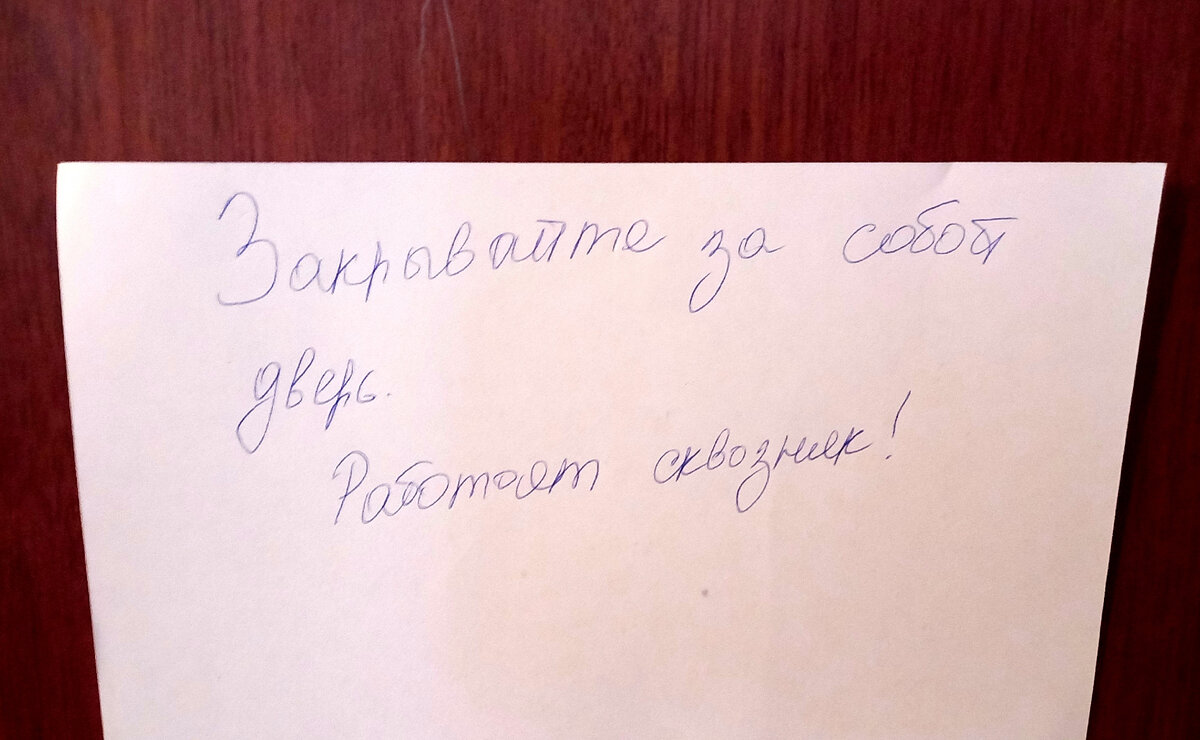 Закрывайте за собой
дверь.
Работает сквозняк!